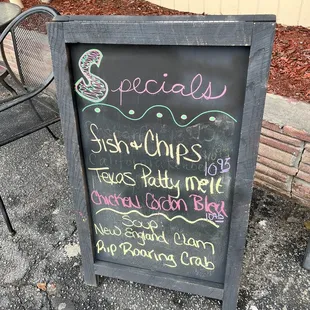 Specials
fish & Chips
10.95
Texas Patty melt
Chicken Cordon Bleu
10.95
Soup
New England Clam
Rip Roaring Crab